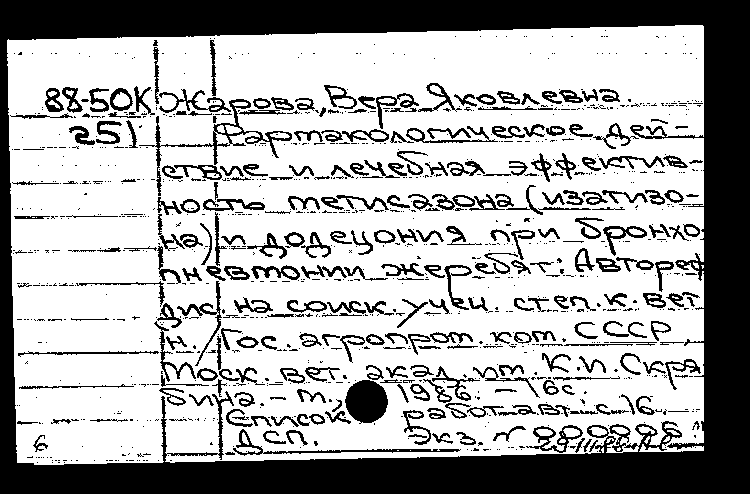 88-50К Жарова, Вера Яковлевна.
251 Фармакологическое дей-
ствие и лечебная эффектив-
ность метисазона (изатизо-
на) и додецония при бронхо
пневмонии жеребят: Автореф
дис. на соиск. учен. степ. к. вет
н. / Гос. агропром. ком. СССР,
Моск. вет. акад. им. К.И. Скря
бина. - М., 1986. - 16с.
Список работ авт. с. 16.
ДСП. Экз. N 000006
6